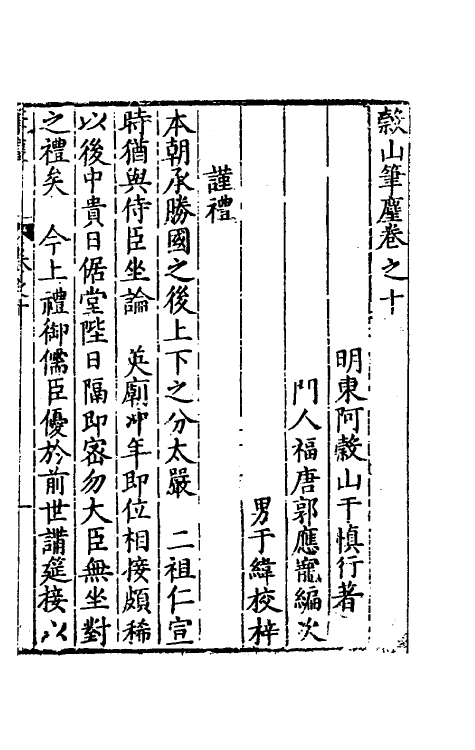 穀山筆麈卷之十
明東阿穀山于慎行著
門人福唐郭應寵編次
男于緯校梓
謹禮
本朝承勝國之後上下之分太嚴　二祖仁宣
時猶與侍臣坐論　英廟冲年即位相接頗稀
以後中貴日倨堂陛日隔即密勿大臣無坐對
之禮矣　今上禮御儒臣優於前世講筵接以